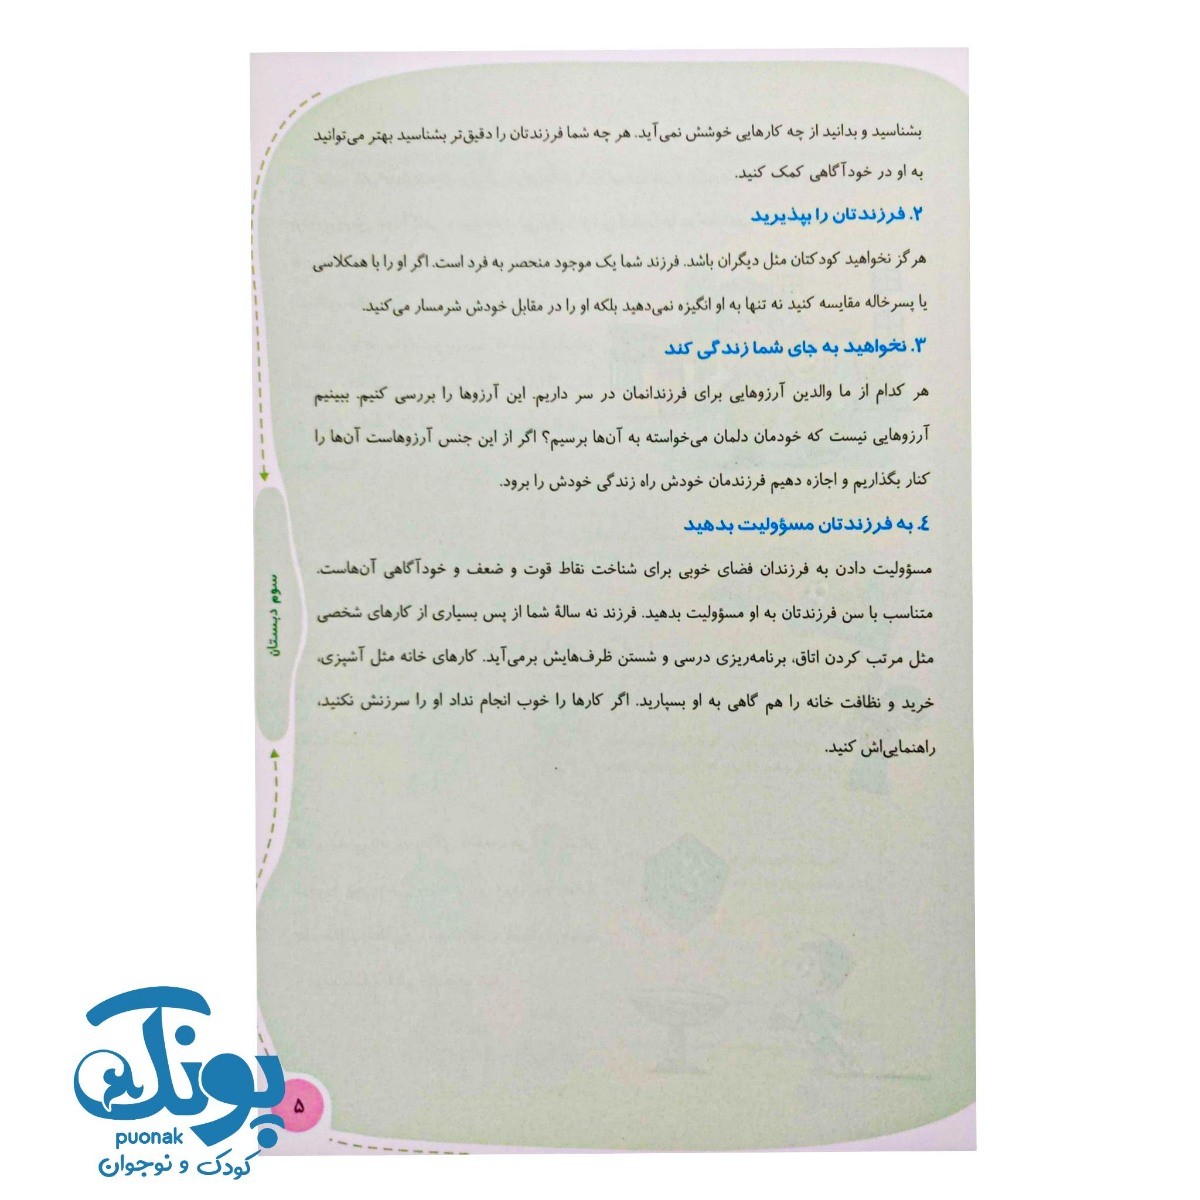 بشناسید و بدانید از چه کارهایی خوشش نمی‌آید. هر چه شما فرزندتان را دقیق‌تر بشناسید بهتر می‌توانید
به او در خودآگاهی کمک کنید.
۲. فرزندتان را بپذیرید
هرگز نخواهید کودکتان مثل دیگران باشد. فرزند شما یک موجود منحصر به فرد است. اگر او را با همکلاسی
یا پسرخاله مقایسه کنید نه تنها به او انگیزه نمی‌دهید بلکه او را در مقابل خودش شرمسار می‌کنید.
۳. نخواهید به جای شما زندگی کند
هر کدام از ما والدین آرزوهایی برای فرزندانمان در سر داریم. این آرزوها را بررسی کنیم. ببینیم
آرزوهایی نیست که خودمان دلمان می‌خواسته به آن‌ها برسیم؟ اگر از این جنس آرزوهاست آن‌ها را
کنار بگذاریم و اجازه دهیم فرزندمان خودش راه زندگی خودش را برود.
۴. به فرزندتان مسؤولیت بدهید
مسؤولیت دادن به فرزندان فضای خوبی برای شناخت نقاط قوت و ضعف و خودآگاهی آن‌هاست.
متناسب با سن فرزندتان به او مسؤولیت بدهید. فرزند نه سالهٔ شما از پس بسیاری از کارهای شخصی
مثل مرتب کردن اتاق، برنامه‌ریزی درسی و شستن ظرف‌هایش برمی‌آید. کارهای خانه مثل آشپزی،
خرید و نظافت خانه را هم گاهی به او بسپارید. اگر کارها را خوب انجام نداد او را سرزنش نکنید،
راهنمایی‌اش کنید.
سوم دبستان
۵
پونک
puonak
کودک و نوجوان